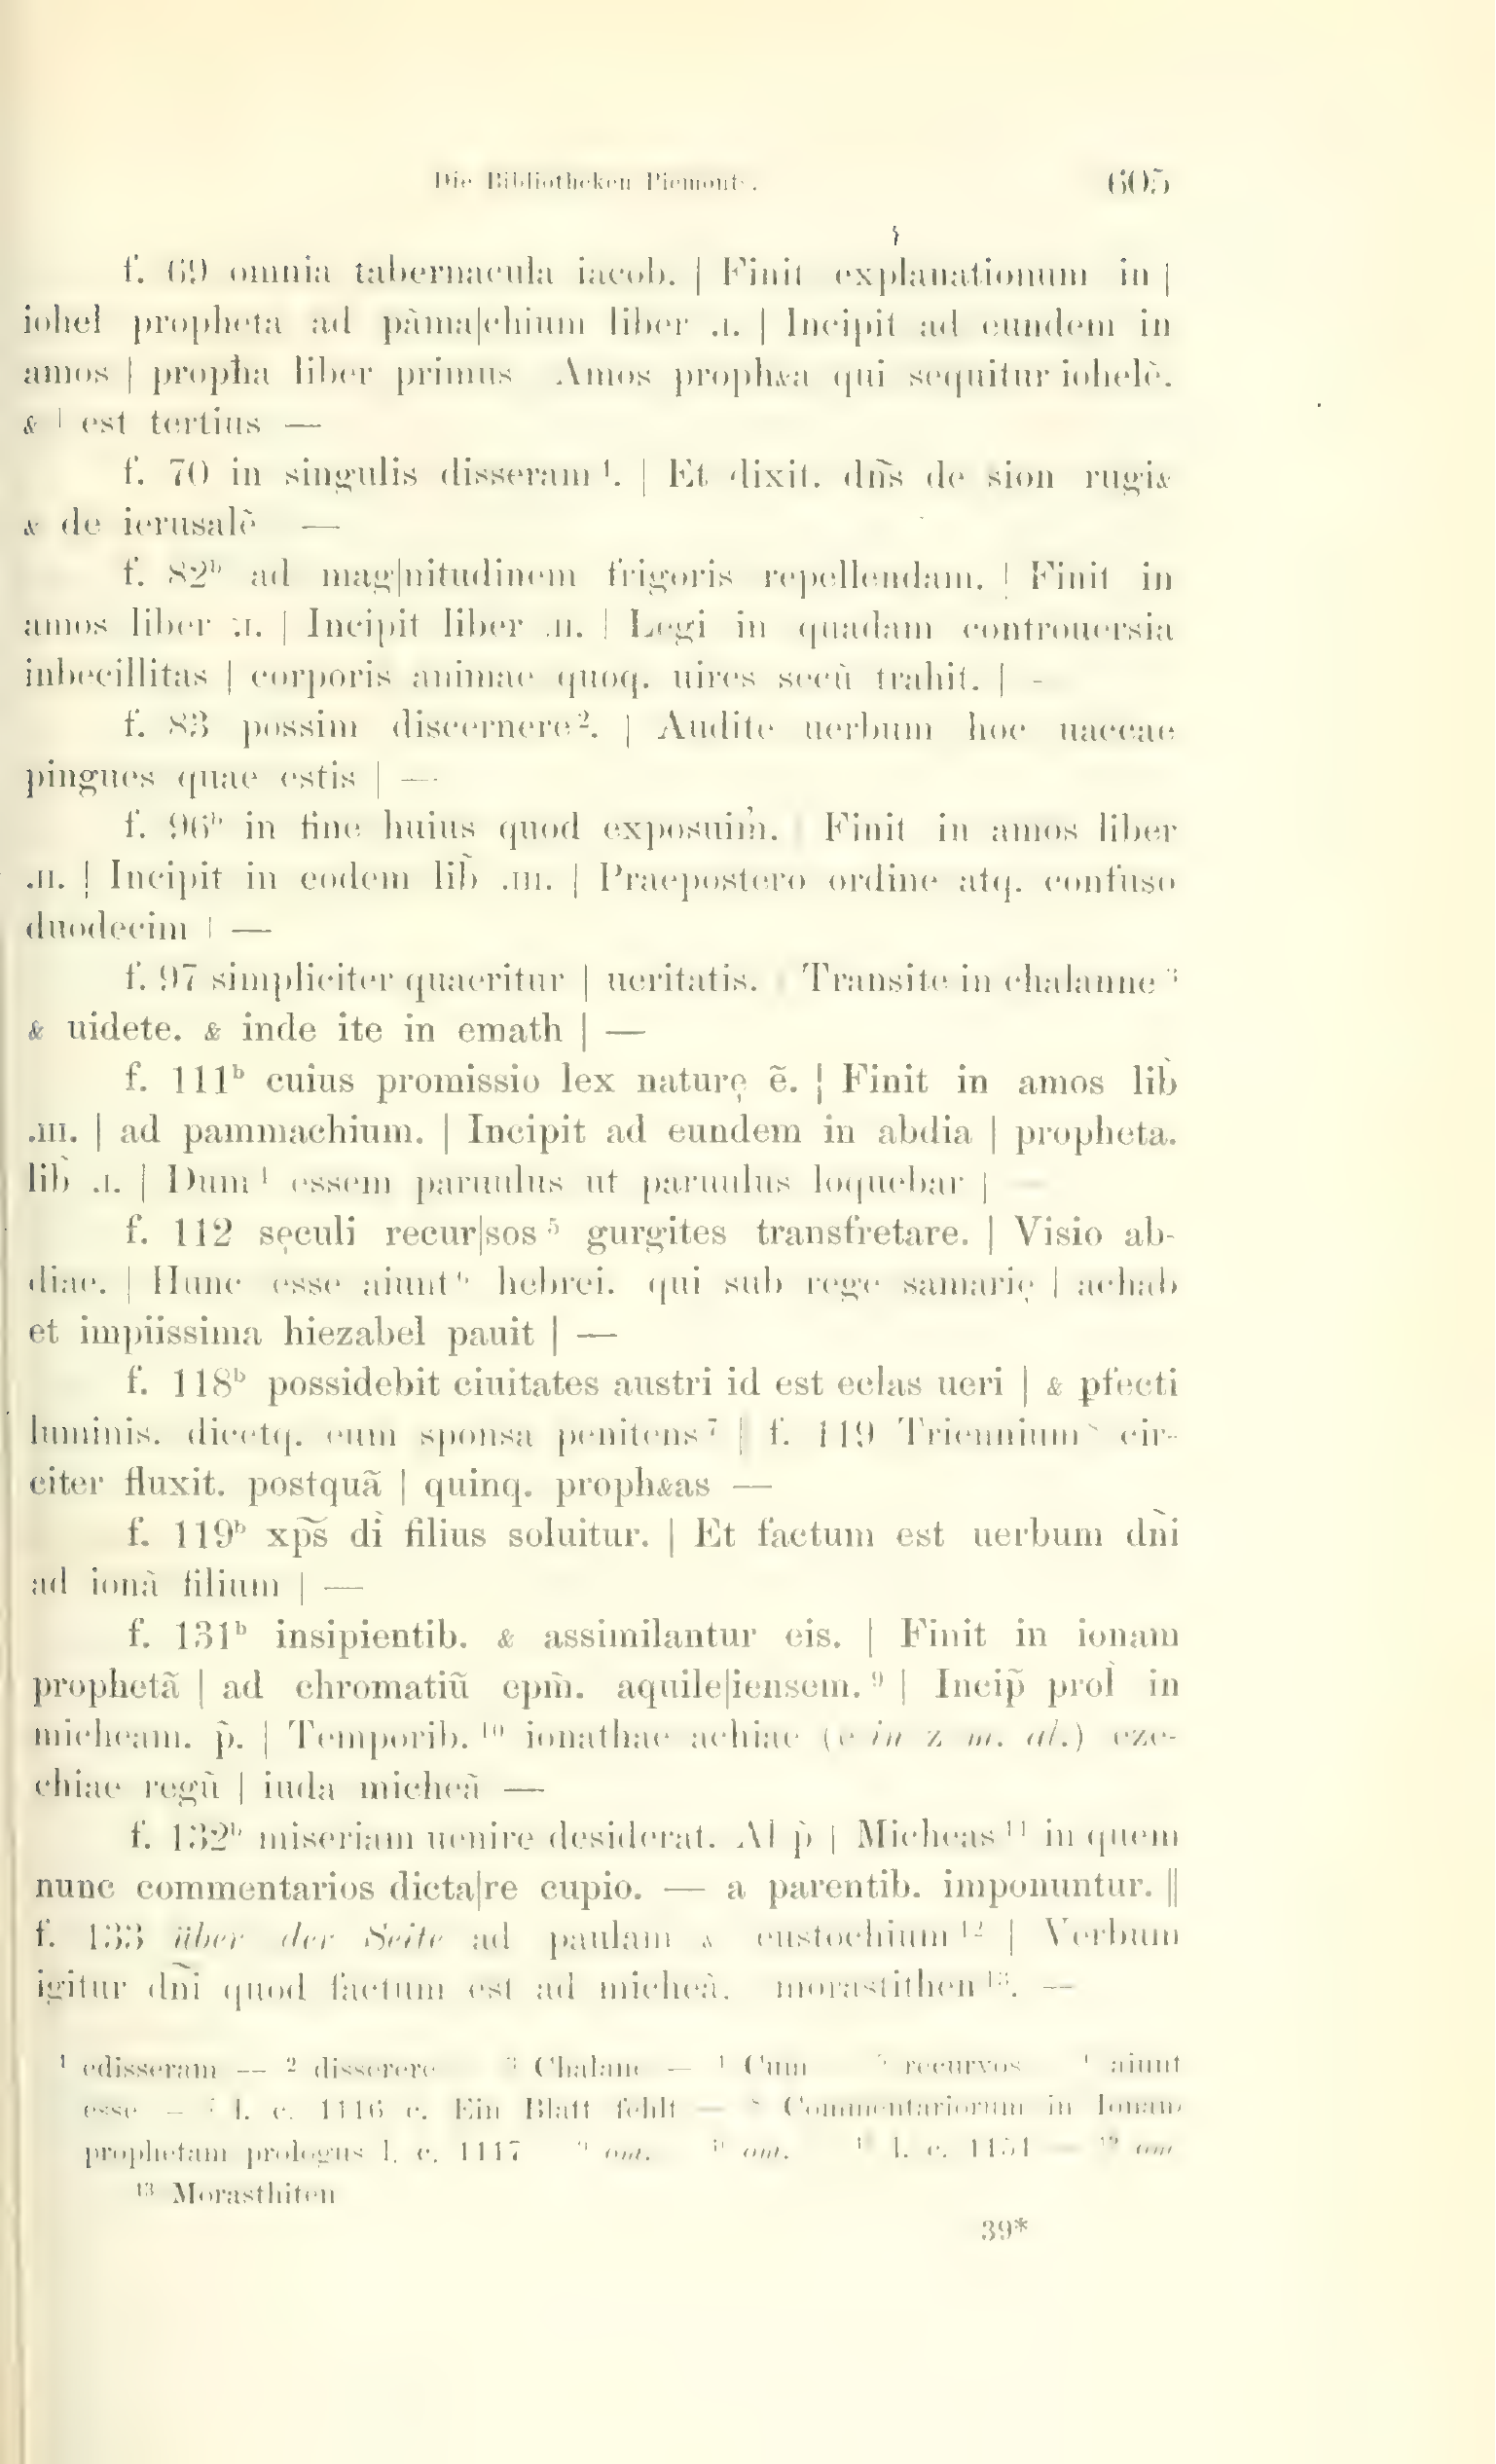 Die Bibliotheken Piemonts. 605
f. 69 omnia tabernacula iacob. | Finit explanationum in |
iohel propheta ad pàma|chium liber .ı. | Incipit ad eundem in
amos | propħa liber primus Amos proph&a qui sequitur iohelẽ.
& | est tertius —
f. 70 in singulis disseram ¹. | Et dixit. dñs de sion rugi&
& de ierusalẽ —
f. 82ᵇ ad mag|nitudinem frigoris repellendam. | Finit in
amos liber .ı. | Incipit liber .ıı. | Legi in quadam controuersia
inbecillitas | corporis animae quoq. uires secũ trahit. | -
f. 83 possim discernere ². | Audite uerbum hoc uaccae
pingues quae estis | —
f. 96ᵇ in fine huius quod exposuim̀. Finit in amos liber
.ıı. | Incipit in eodem lib̀ .ııı. | Praepostero ordine atq. confuso
duodecim | —
f. 97 simpliciter quaeritur | ueritatis. Transite in chalanne ³
& uidete. & inde ite in emath | —
f. 111ᵇ cuius promissio lex naturę ẽ. | Finit in amos lib̀
.ııı. | ad pammachium. | Incipit ad eundem in abdia | propheta.
lib̀ .ı. | Dum ⁴ essem paruulus ut paruulus loquebar |
f. 112 sęculi recur|sos ⁵ gurgites transfretare. | Visio ab-
diae. | Hunc esse aiunt ⁶ hebrei. qui sub rege samarię | achab
et impiissima hiezabel pauit | —
f. 118ᵇ possidebit ciuitates austri id est eclas ueri | & pfecti
luminis. dicetq. cum sponsa penitens ⁷ | f. 119 Triennium ⁸ cir-
citer fluxit. postquã | quinq. proph&as —
f. 119ᵇ xp̃s dì filius soluitur. | Et factum est uerbum dñi
ad ionã filium | —
f. 131ᵇ insipientib. & assimilantur eis. | Finit in ionam
prophetã | ad chromatiũ epm̀. aquile|iensem. ⁹ | Incip̃ prol̀ in
micheam. p̀. | Temporib. ¹⁰ ionathae achiae (e in z m. al.) eze-
chiae regũ | iuda micheã —
f. 132ᵇ miseriam uenire desiderat. Al p̀ | Micheas ¹¹ in quem
nunc commentarios dicta|re cupio. — a parentib. imponuntur. ||
f. 133 über der Seite ad paulam & eustochium ¹² | Verbum
igitur dñi quod factum est ad micheã. morastithen ¹³. —
¹ edisseram — ² disserere ³ Chalane — ⁴ Cum ⁵ recurvos ⁶ aiunt
esse — ⁷ l. c. 1116 c. Ein Blatt fehlt — ⁸ Commentariorum in Ionam
prophetam prologus l. c. 1117 ⁹ om. ¹⁰ om. ¹¹ l. c. 1151 — ¹² om
¹³ Morasthiten
39*